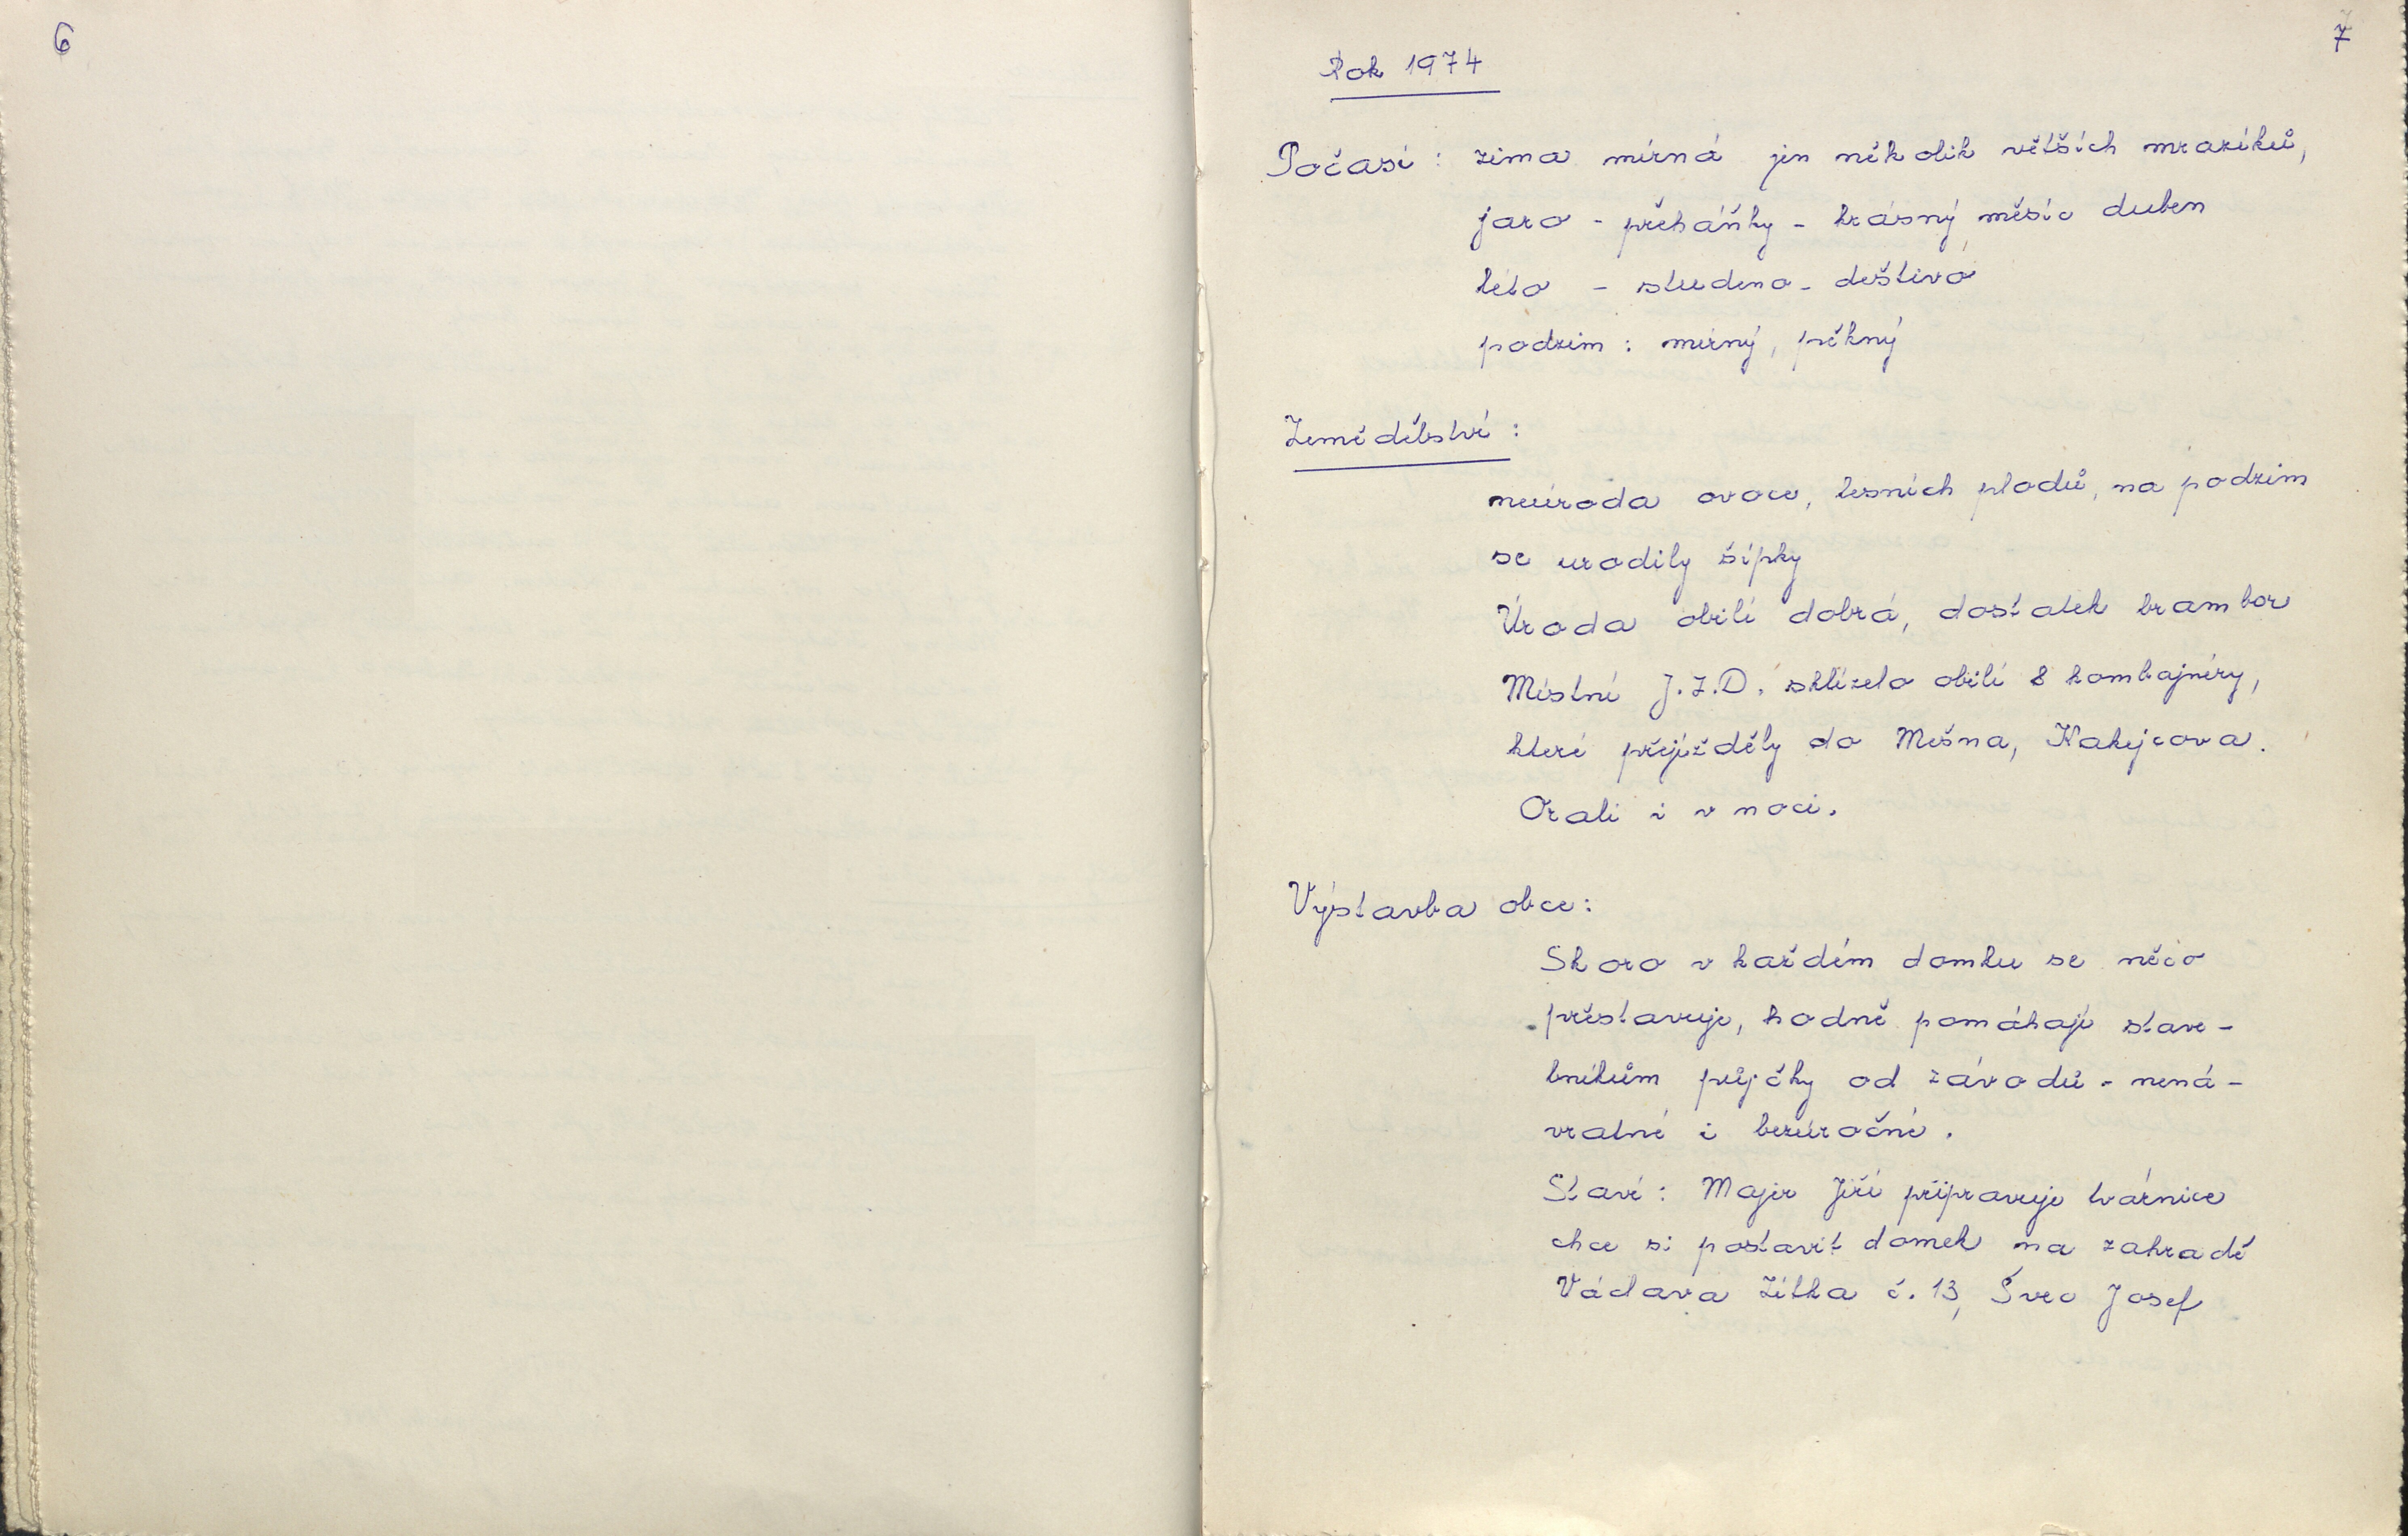 6
7
Rok 1974
Počasí : zima mírná jen několik větších mrazíků,
jaro - přeháňky - krásný měsíc duben
léto - studeno - deštivo
podzim : mírný, pěkný
Zemědělství :
neúroda ovoce, lesních plodů, na podzim
se urodily šípky
Úroda obilí dobrá, dostatek brambor
Místní J.Z.D. sklízelo obilí 8 kombajnéry,
které přejížděly do Mešna, Kakejcova.
Orali i v noci.
Výstavba obce:
Skoro v každém domku se něco
přestavuje, hodně pomáhají stave-
bníkům půjčky od závodů - nená-
vratné i bezúročné.
Staví : Majer Jiří připravuje tvárnice
chce si postavit domek na zahradě
Václava Zítka č. 13, Švec Josef